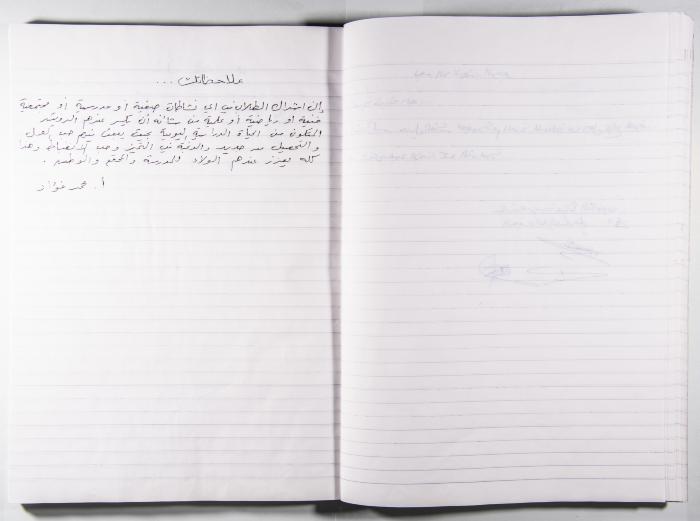 ملاحظات ...
إن اشتراك الطلاب في أي نشاطات صفية أو مدرسية أو مجتمعية
فنية أو رياضية أو علمية من شأنه أن يكسر عندهم الروتين
المتكون من الحياة الدراسية اليومية بحيث يبعث فيهم حب العمل
والتحصيل من جديد والرغبة في التميز وحب الانضباط وهذا
كله يعزز عندهم الولاء للمدرسة والمجتمع والوطن .
أ. محمد فؤاد